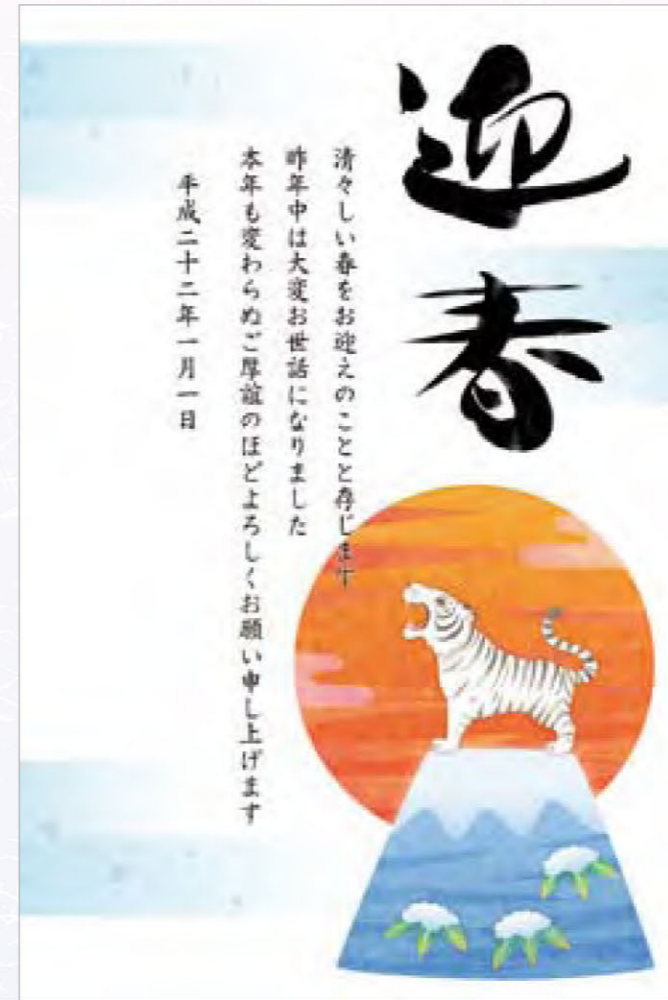 迎春
清々しい春をお迎えのことと存じます
昨年中は大変お世話になりました
本年も変わらぬご厚誼のほどよろしくお願い申し上げます
平成二十二年一月一日